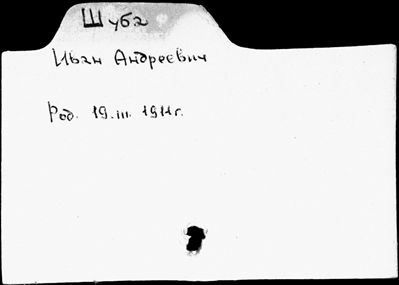 Шуба
Иван Андреевич
Род. 19.III.1911г.